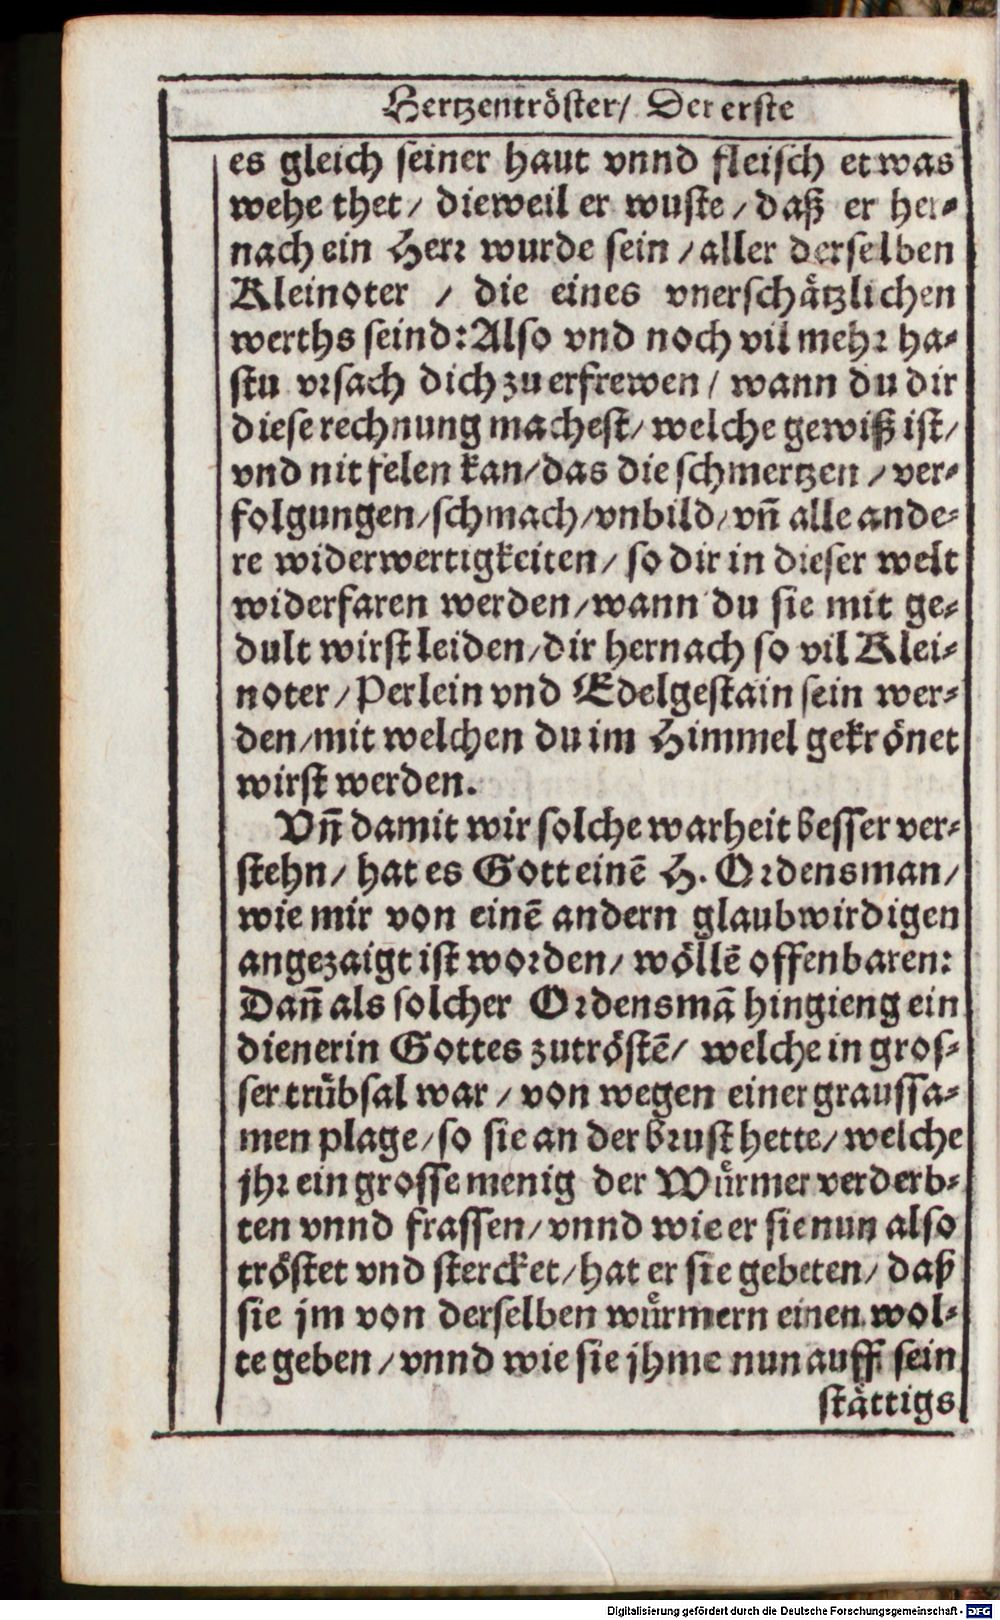 Hertzentröster/ Der erste
es gleich seiner haut vnnd fleisch etwas
wehe thet/ dieweil er wuste/ daß er her-
nach ein Herr wurde sein/ aller derselben
Kleinoter / die eines vnerschätzlichen
werths seind: Also vnd noch vil mehr ha-
stu vrsach dich zu erfrewen/ wann du dir
diese rechnung machest/ welche gewiß ist/
vnd nit felen kan/ das die schmertzen / ver-
folgungen/ schmach/ vnbild/ vñ alle ande-
re widerwertigkeiten/ so dir in dieser welt
widerfaren werden/ wann du sie mit ge-
dult wirst leiden/ dir hernach so vil Klei-
noter/ Perlein vnd Edelgestain sein wer-
den/ mit welchen du im Himmel gekrönet
wirst werden.
Vñ damit wir solche warheit besser ver-
stehn/ hat es Gott einē H. Ordensman/
wie mir von einē andern glaubwirdigen
angezaigt ist worden/ wöllē offenbaren:
Dañ als solcher Ordensmā hingieng ein
dienerin Gottes zutröstē/ welche in gros-
ser trübsal war / von wegen einer graussa-
men plage/ so sie an der brust hette/ welche
jhr ein grosse menig der Würmer verderb-
ten vnnd frassen/ vnnd wie er sie nun also
tröstet vnd stercket/ hat er sie gebeten/ daß
sie jm von derselben würmern einen wol-
te geben / vnnd wie sie jhme nun auff sein
stättigs
Digitalisierung gefördert durch die Deutsche Forschungsgemeinschaft - DFG